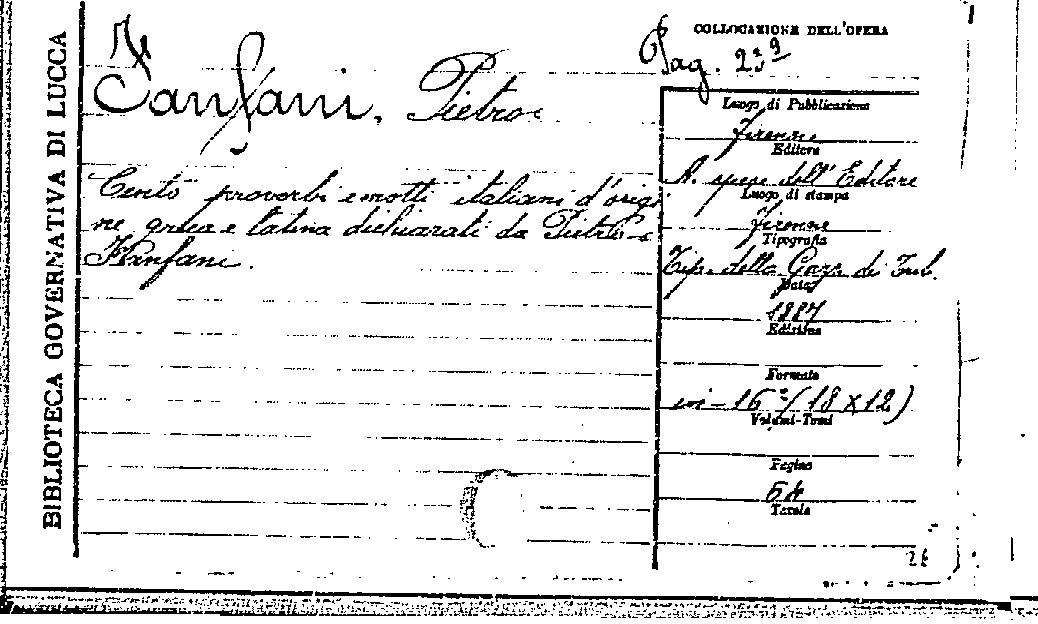 BIBLIOTECA GOVERNATIVA DI LUCCA
Fanfani, Pietro
Cento proverbi e motti italiani d'origi
ne greca e latina dichiarati da Pietro
Fanfani.
COLLOCAZIONE DELL'OPERA
Pag.
Luogo di Pubblicazione
Firenze
Editore
A spese dell'Editore
Luogo di stampa
Firenze
Tipografia
Tip. della Gazz. dei Trib.
Data
Edizione
Formato
in-16º (18 x 12)
Volumi-Tomi
Pagine
Tavole
26